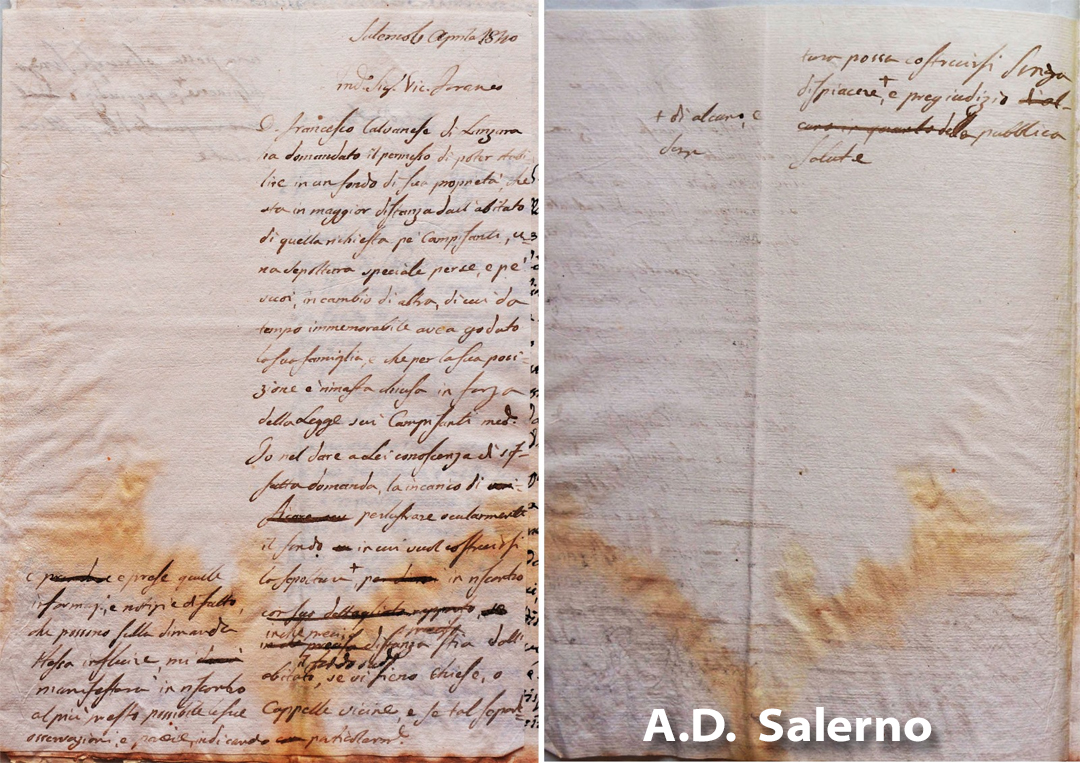 Salerno 6 Aprile 1840
Sig. Vic. Foraneo
D. Francesco Calvanese di Lanzara
ha domandato il permesso di poter stabi
lire in un fondo di sua proprietà, che
sta in maggior distanza dall'abitato
di quella richiesta pe' Campisanti, u
na sepoltura speciale per se, e pe'
suoi, in cambio di altra, di cui da
tempo immemorabile avea goduto
la sua famiglia, e che per la sua posi-
zione è rimasta chiusa in forza
della Legge sui Campisanti med.i
Io nel dare a Lei conoscenza di sif-
fatta domanda, la incarico di
perlustrare ocularmente
il fondo in cui vuol costruirsi
la sepoltura + in riscontro
con suo dettagliato rapporto
distanza stia dall'
il fondo sud.o
abitato, se vi sieno Chiese, o
Cappelle vicine, e se tal sepol-
e prese quelle
informaz.i e notizie di fatto,
che possono sulla dimanda
stessa influire, mi
manifesterà in riscontro
al più presto possibile le sue
osservazioni, e indicando particolarm.e
tura possa costruirsi senza
dispiacere + e pregiudizio d'al-
cuno in quanto della pubblica
salute
+ di alcuno, e
senz
A.D. Salerno